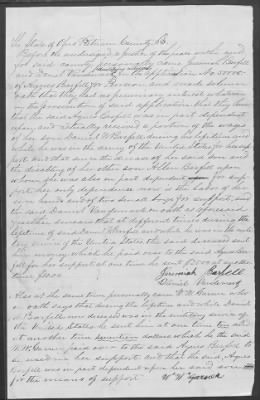 The State of Ohio Putnam County SS.
Before the undersigned a Justice of the peace within and
for said county personally came Jeremiah Barfell
and Daniel in the application No.
of Agnes Barfell for Pension and made solemn
oath that they had no pecuniary interest whatever
in the prosecution of said application that they know
that the said Agnes Barfell was in part dependent
upon and actually received a portion of the wages
of her son Daniel Barfell during his lifetime and
while he was in the army of the United States for her sup
port and that since the decease of her said son and
the disability of her other son Barfell upon
whom she was also in part dependent for sup
port her only dependence now is the labor of her
own hands and of two small boys for support, and
the said Daniel on oath as aforesaid
further said that at different times during the
lifetime of said Daniel Barfell and while he was in the mili
tary service of the United States the said deceased sent
him money which he paid over to the said Agnes Bar
fell for her support at one time he sent and at another
time
Jeremiah Barfell
Daniel
Also at the same time personally came W. H. who
on oath says that during the lifetime and while Daniel
Barfell now deceased was in the military service of
the United States he sent him at one time ten and
at another time dollars which he the said
W. H. paid over to the said Agnes Barfell to
be used in her support and that the said Agnes
Barfell was in part dependent upon her said son
for the means of support
W. H.